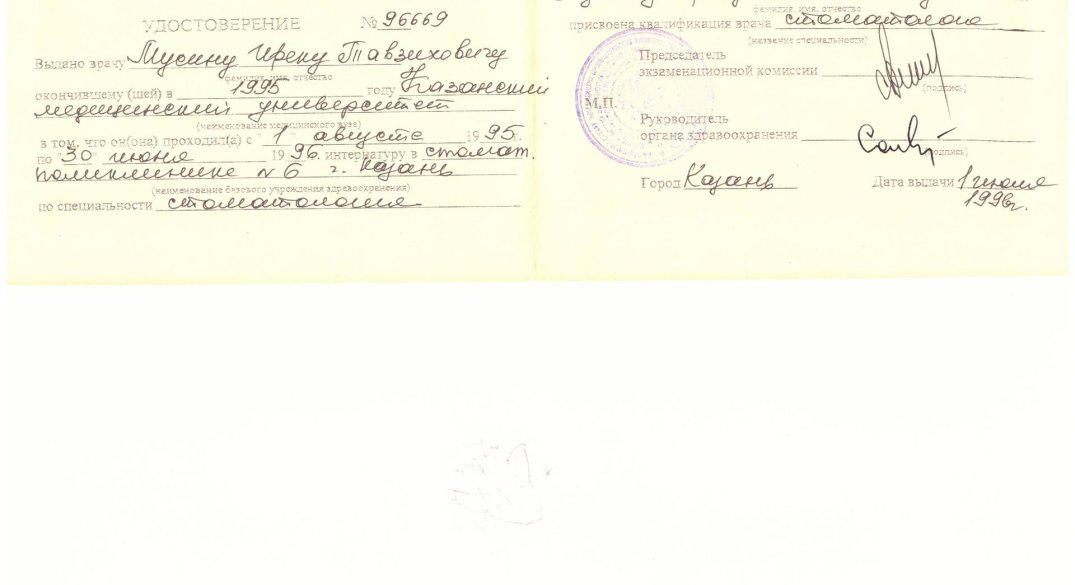 УДОСТОВЕРЕНИЕ № 96669
Выдано врачу Мусину Иреку Тавзиховичу
фамилия, имя, отчество
окончившему (шей) в 1995 году Казанский
медицинский университет
(наименование медицинского вуза)
в том, что он(она) проходил(а) с "1" августа 1995г.
по "30" июня 1996. интернатуру в стомат.
поликлинике № 6 г. Казань
(наименование базового учреждения здравоохранения)
по специальности стоматология
фамилия, имя, отчество
присвоена квалификация врача стоматолога
(название специальности)
Председатель
экзаменационной комиссии
(подпись)
М.П.
Руководитель
органа здравоохранения
(подпись)
Город Казань Дата выдачи 1 июля
1996г.